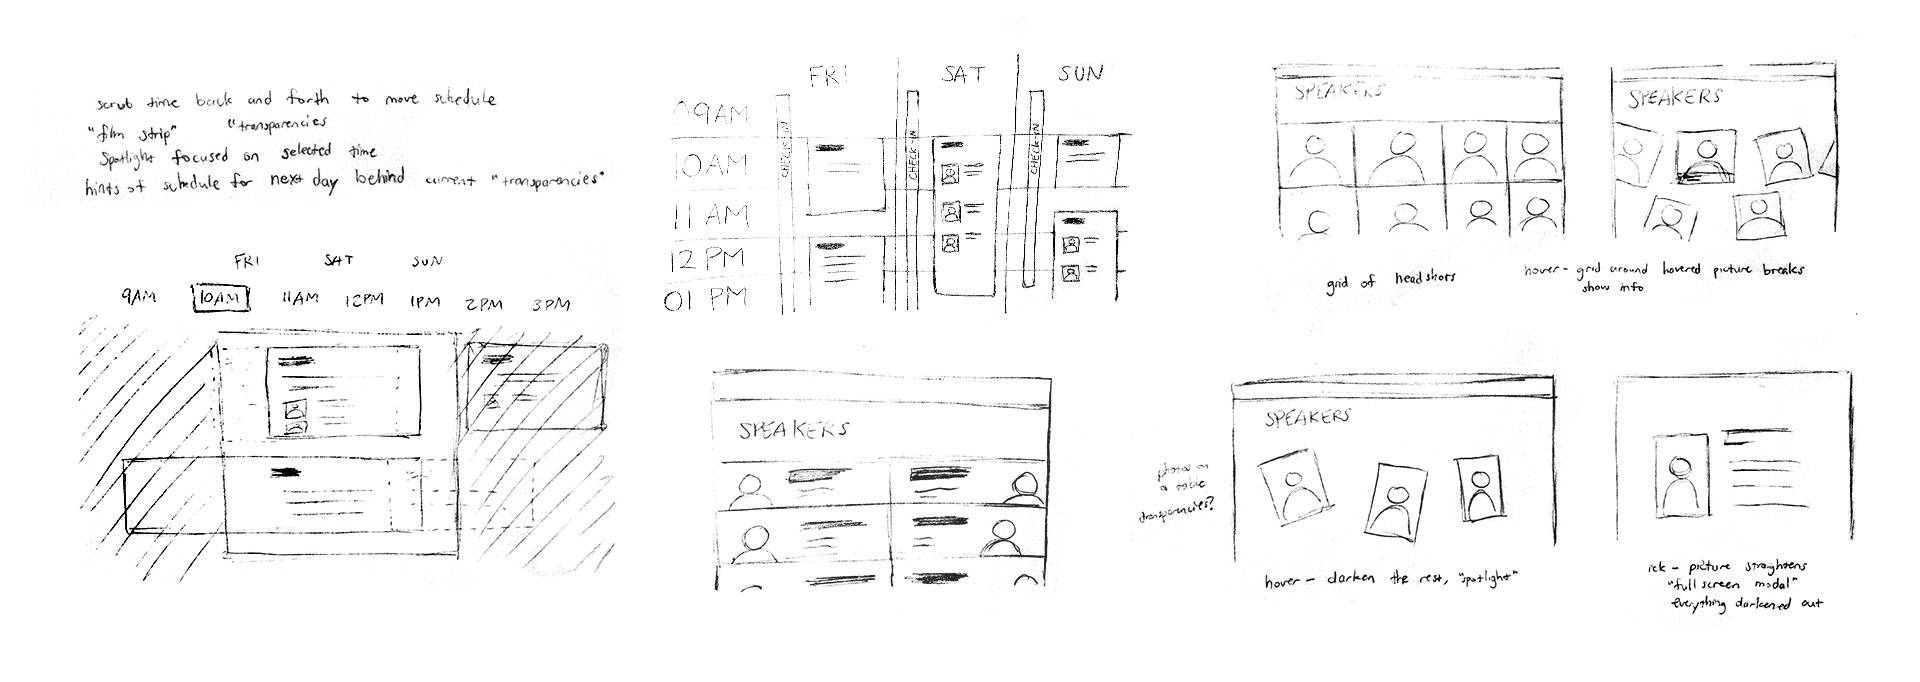 scrub time back and forth to move schedule
"film strip" "transparencies
Spotlight focused on selected time
hints of schedule for next day behind current "transparencies"
FRI SAT SUN
9AM 10AM 11AM 12PM 1PM 2PM 3PM
FRI SAT SUN
09AM
10AM
11 AM
12 PM
01 PM
CHECK-IN
CHECK-IN
CHECK-IN
SPEAKERS
SPEAKERS
grid of headshots
SPEAKERS
hover - grid around hovered picture breaks
show info
photos on
a
transparencies?
SPEAKERS
hover - darken the rest, "spotlight"
ick - picture straightens
"full screen modal"
everything darkened out